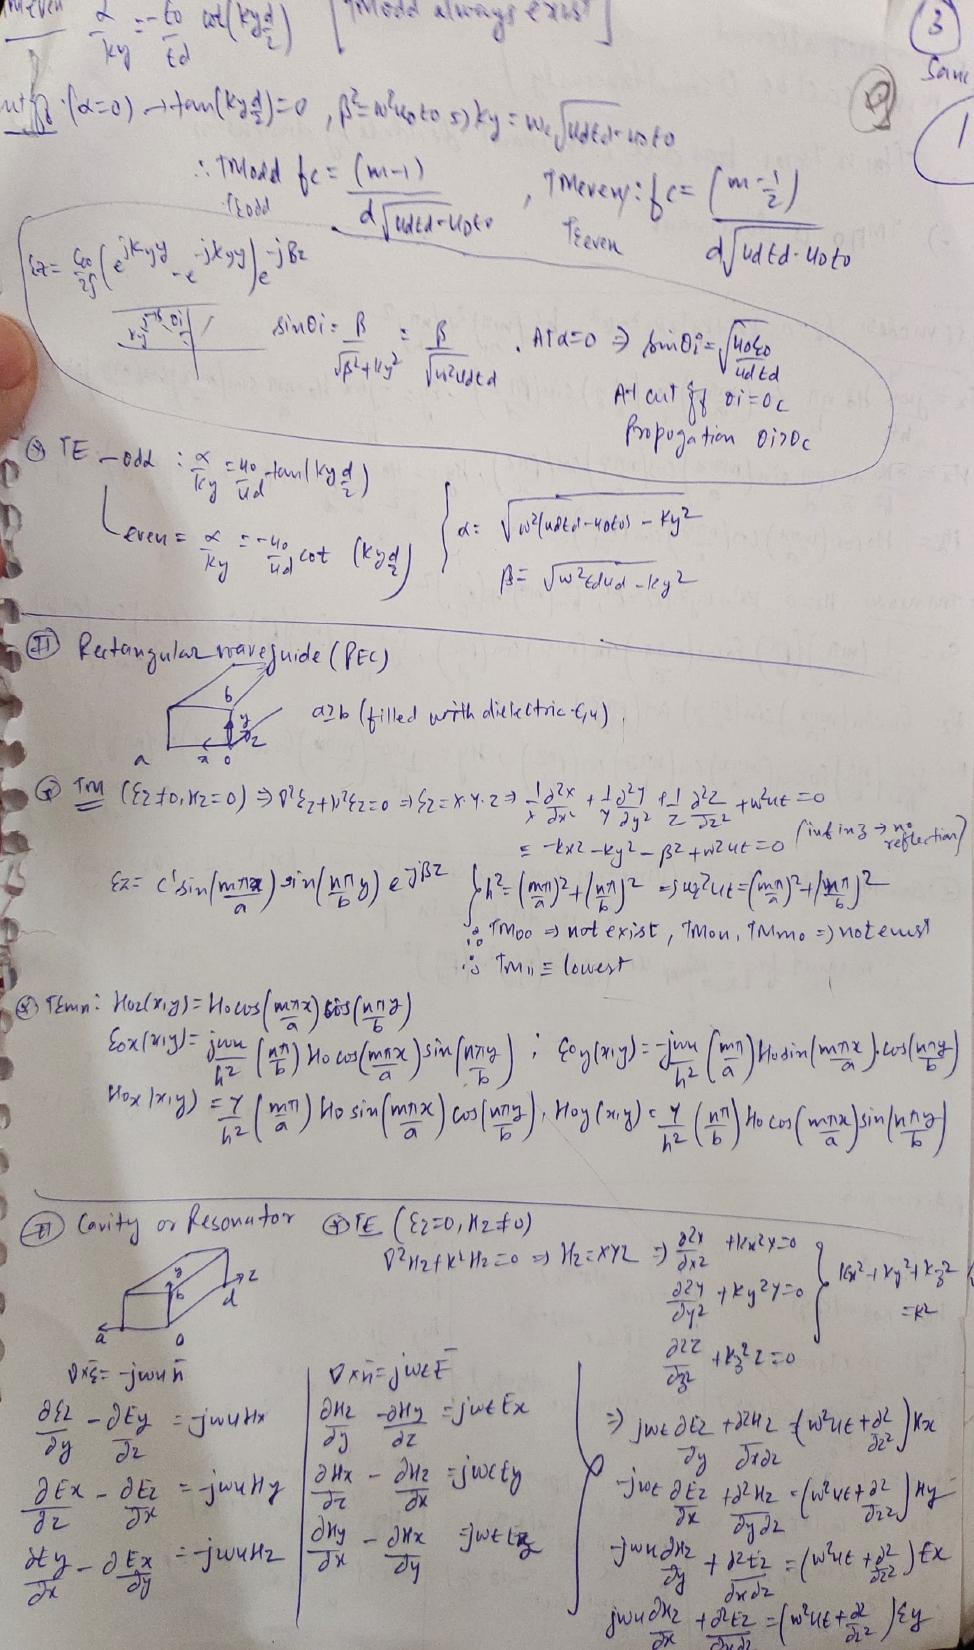 TMeven α/ky = -ϵo/ϵd cot(ky d/2) [TModd always exist]
3
Same
1
(α=0) → tan(ky d/2)=0 , β²=ω²μoϵo → ky = ωc√μdϵd-μoϵo
∴ TModd fc = (m-1)/d√μdϵd-μoϵo , TMeven: fc = (m-1/2)/d√μdϵd-μoϵo
TEodd TEeven
Ez = Eo/2j (e^jkyy - e^-jkyy) e^-jβz
sinθi = β/√β²+ky² = β/√ω²μdϵd . At α=0 ⇒ sinθi = √μoϵo/μdϵd
At cut off θi=θc
Propogation θi>θc
TE - odd : α/ky = μo/μd tan(ky d/2)
even = α/ky = -μo/μd cot (ky d/2)
α = √ω²(μdϵd-μoϵo) - ky²
β = √ω²ϵdμd - ky²
Rectangular waveguide (PEC)
b
y
z
a x 0
a≥b (filled with dielectric ϵ,μ)
TM (Ez≠0, Hz=0) ⇒ ∇²Ez+k²Ez=0 ⇒ Ez=X·Y·Z ⇒ 1/X ∂²X/∂x² + 1/Y ∂²Y/∂y² + 1/Z ∂²Z/∂z² + ω²μϵ = 0
= -kx² - ky² - β² + ω²μϵ = 0 (inf in z → no reflection)
Ez = C' sin(mπx/a) sin(nπy/b) e^-jβz { h² = (mπ/a)² + (nπ/b)² ⇒ ωc²μϵ = (mπ/a)² + (nπ/b)²
∴ TMoo ⇒ not exist, TMon, TMmo ⇒ not exist
∴ TM11 = lowest
TEmn: Hoz(x,y) = Ho cos(mπx/a) cos(nπy/b)
Eox(x,y) = jωμ/h² (nπ/b) Ho cos(mπx/a) sin(nπy/b) ; Eoy(x,y) = -jωμ/h² (mπ/a) Ho sin(mπx/a) · cos(nπy/b)
Hox(x,y) = γ/h² (mπ/a) Ho sin(mπx/a) cos(nπy/b), Hoy(x,y) = γ/h² (nπ/b) Ho cos(mπx/a) sin(nπy/b)
Cavity or Resonator TE (Ez=0, Hz≠0)
∇²Hz+k²Hz=0 ⇒ Hz=XYZ ⇒ ∂²X/∂x² + kx²X=0
∂²Y/∂y² + ky²Y=0
∂²Z/∂z² + kz²Z=0
kx²+ky²+kz² = k²
y
b
z
d
a 0
∇×E̅ = -jωμH̅
∂Ez/∂y - ∂Ey/∂z = -jωμHx
∂Ex/∂z - ∂Ez/∂x = -jωμHy
∂Ey/∂x - ∂Ex/∂y = -jωμHz
∇×H̅ = jωϵE̅
∂Hz/∂y - ∂Hy/∂z = jωϵEx
∂Hx/∂z - ∂Hz/∂x = jωϵEy
∂Hy/∂x - ∂Hx/∂y = jωϵEz
⇒ jωϵ ∂Ez/∂y + ∂²Hz/∂x∂z = (ω²μϵ + ∂²/∂z²) Hx
-jωϵ ∂Ez/∂x + ∂²Hz/∂y∂z = (ω²μϵ + ∂²/∂z²) Hy
-jωμ ∂Hz/∂y + ∂²Ez/∂x∂z = (ω²μϵ + ∂²/∂z²) Ex
jωμ ∂Hz/∂x + ∂²Ez/∂y∂z = (ω²μϵ + ∂²/∂z²) Ey